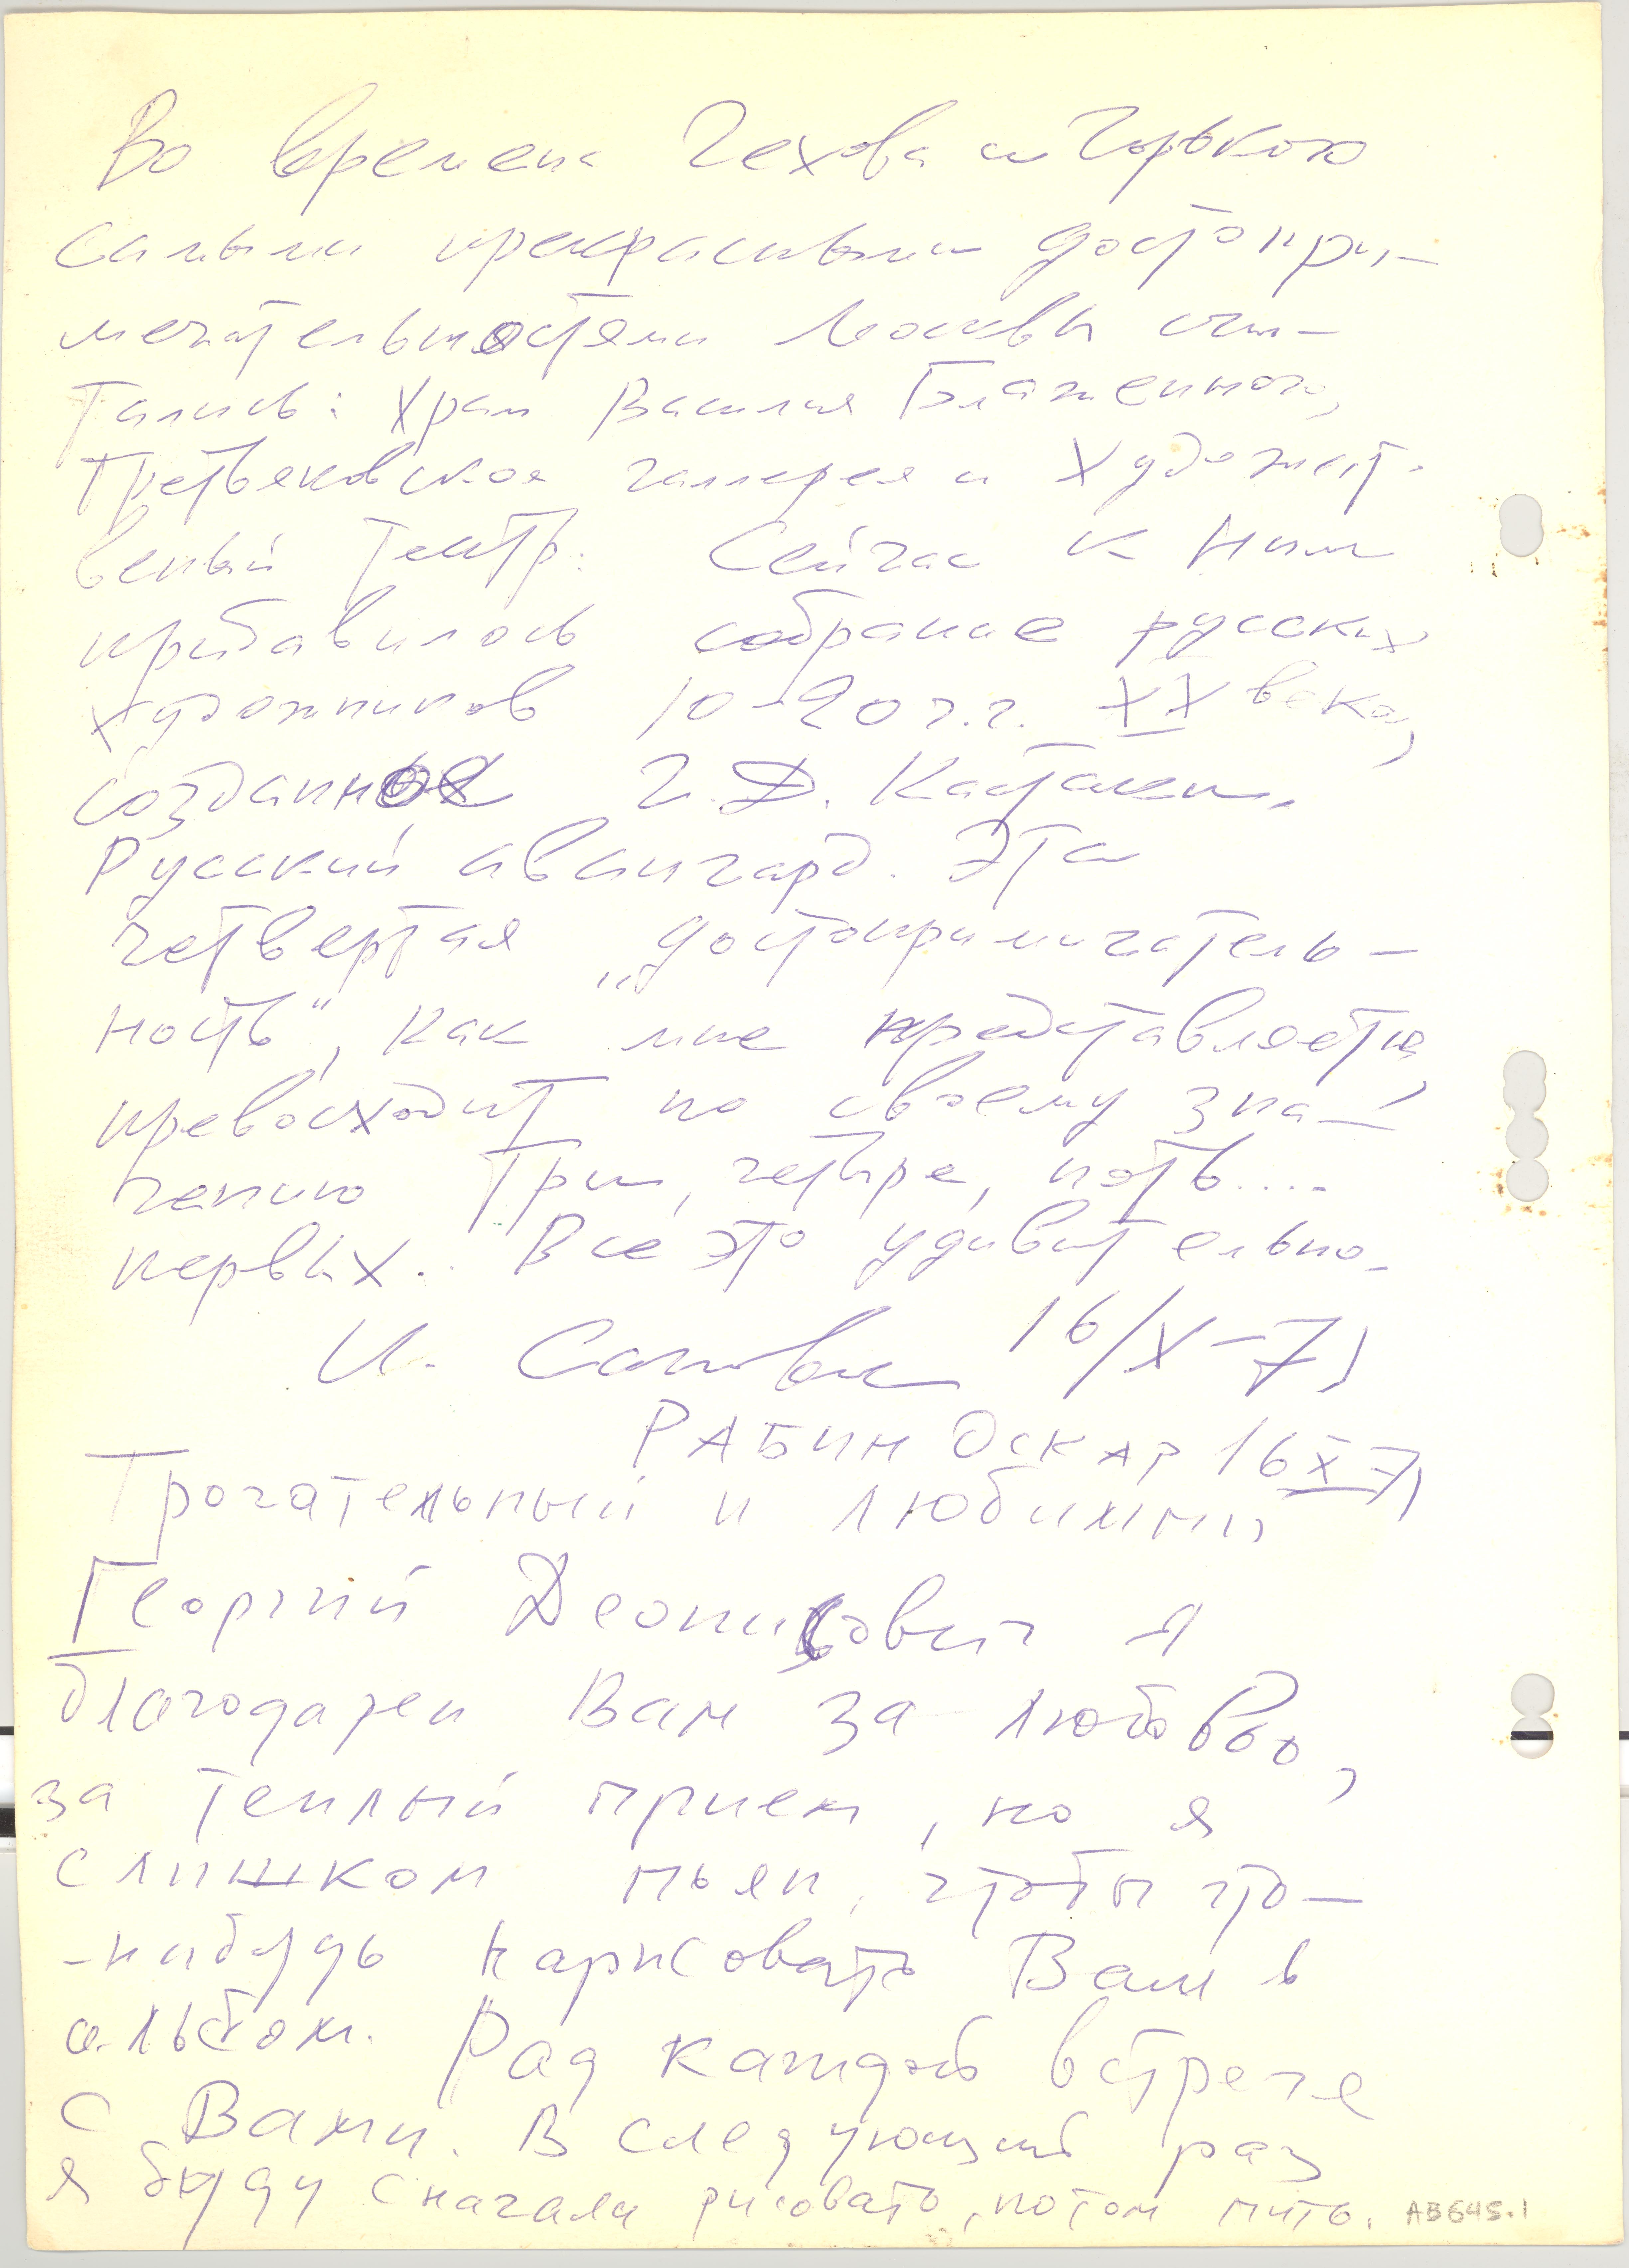 Во времена Чехова и Горького
самыми прекрасными достопри-
мечательностями Москвы счи-
тались: Храм Василия Блаженного,
Третьяковская галлерея и Художест-
венный театр. Сейчас к ним
прибавилось собрание русских
художников 10-20 г.г. XX века,
созданное Г.Д. Костаки.
Русский авангард. Эта
четвертая „достопримечатель-
ность", как мне представляется,
превосходит по своему зна-
чению три, четыре, пять....
первых.. Все это удивительно.
И. 16/X-71
РАБИН ОСКАР 16 X 71
Трогательный и любимый
Георгий Деонисович я
благодарен Вам за любовь,
за теплый прием, но я
слишком пьян, чтобы что-
-нибудь нарисовать Вам в
альбом. Рад каждой встрече
с Вами. В следующий раз
я буду сначала рисовать, потом пить.
AB645.1